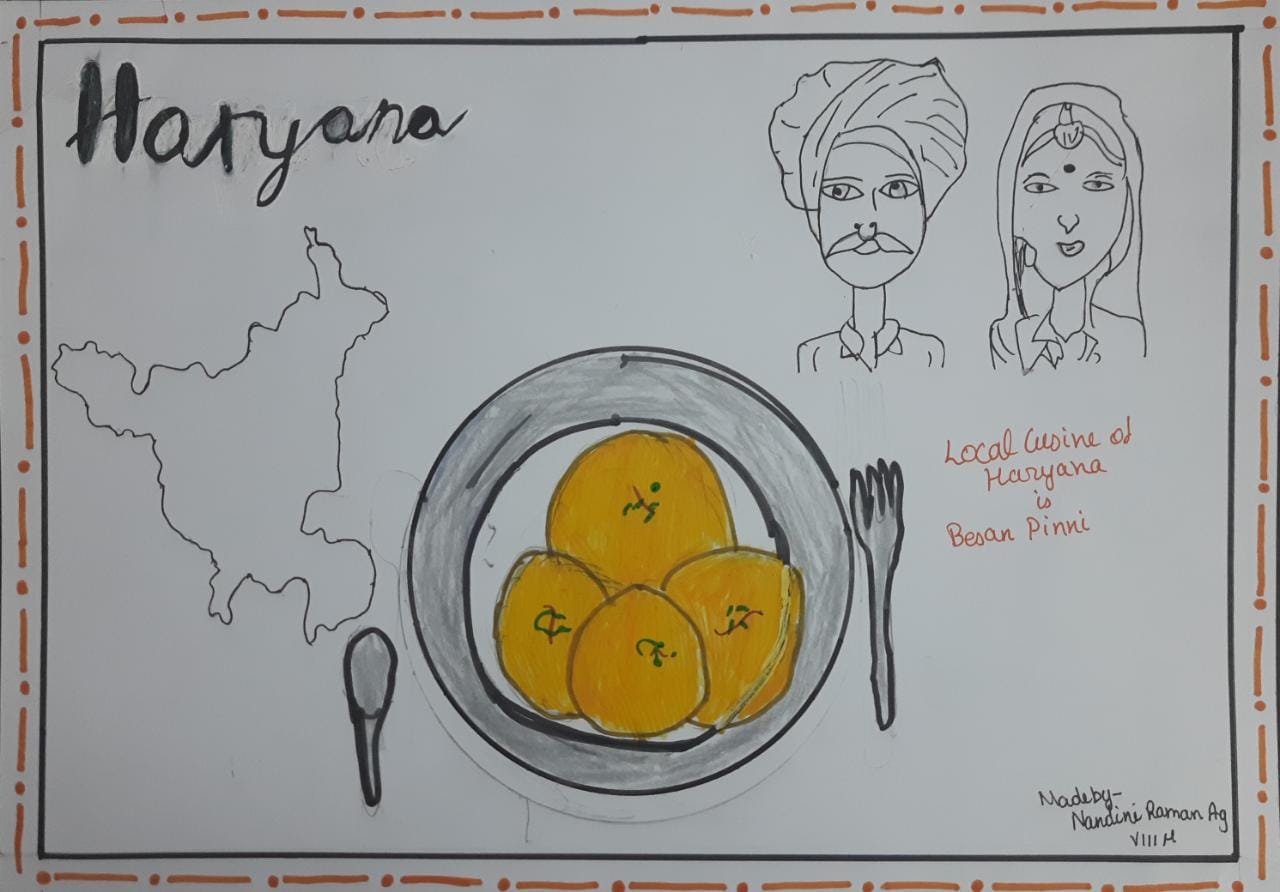 Haryana
Local Cusine of
Haryana
is
Besan Pinni
Madeby-
Nandini Raman Ag
VIII M